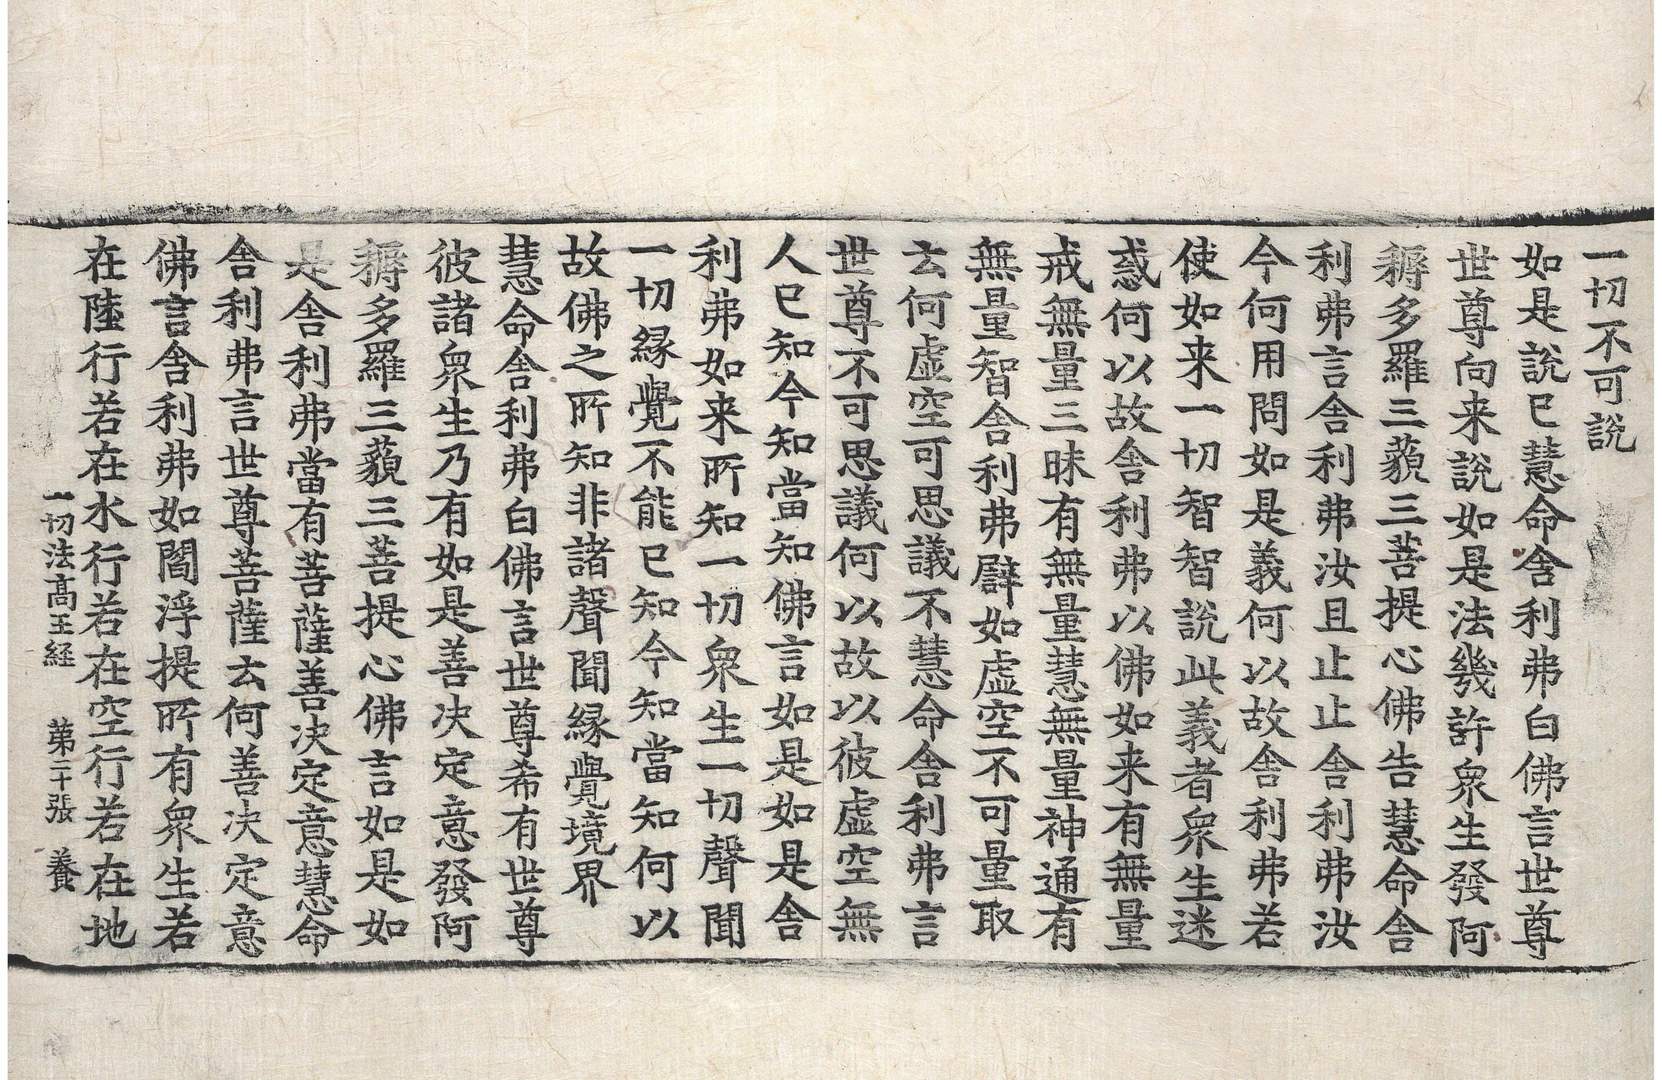 一切不可說
如是說已慧命舍利弗白佛言世尊
世尊向来說如是法幾許衆生發阿
耨多羅三藐三菩提心佛告慧命舍
利弗言舍利弗汝且止止舍利弗汝
今何用問如是義何以故舍利弗若
使如来一切智智說此義者衆生迷
惑何以故舍利弗以佛如来有無量
戒無量三昧有無量慧無量神通有
無量智舍利弗譬如虛空不可量取
云何虛空可思議不慧命舍利弗言
世尊不可思議何以故以彼虛空無
人已知今知當知佛言如是如是舍
利弗如来所知一切衆生一切聲聞
一切緣覺不能已知今知當知何以
故佛之所知非諸聲聞緣覺境界
慧命舍利弗白佛言世尊希有世尊
彼諸衆生乃有如是善決定意發阿
耨多羅三藐三菩提心佛言如是如
是舍利弗當有菩薩善決定意慧命
舍利弗言世尊菩薩云何善決定意
佛言舍利弗如閻浮提所有衆生若
在陸行若在水行若在空行若在地
一切法高王経 第二十張 養